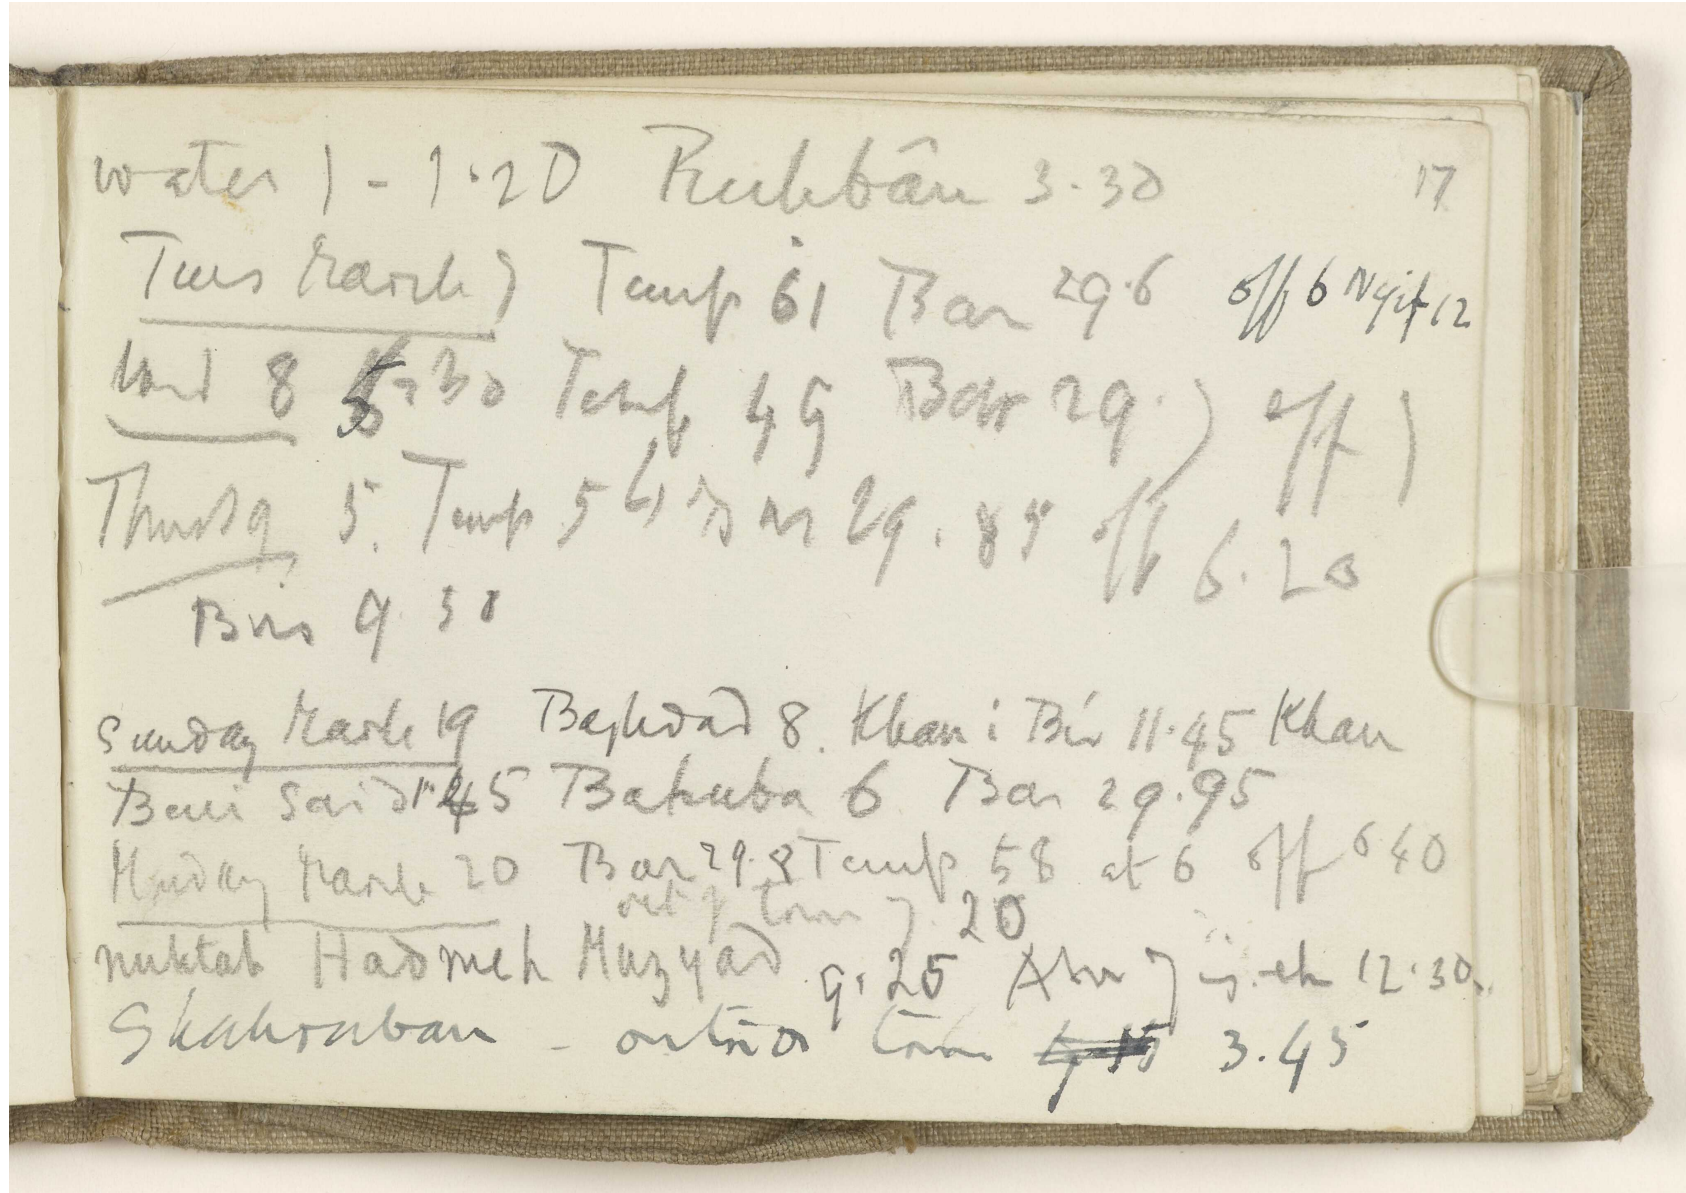 water 1 - 1.20 Rukbân 3.30 17
Tues March 7 Temp 61 Bar 29.6 off 6 Nejef 12
Wed 8 5.30 Temp 49 Bar 29.7 off 7
Thurs 9 5. Temp 54 Bar 29.85 off 6.20
Birs 9 30
Sunday March 19 Baghdad 8. Khan i Bir 11.45 Khan
Beni Said 1.45 Bakuba 6 Bar 29.95
Monday March 20 Bar 29.8 Temp 58 at 6 off 6 40
out of town 7. 20
nuktah Hadmeh Muzyad 9.25 Abu 12.30
Shahraban - outside town 3.45